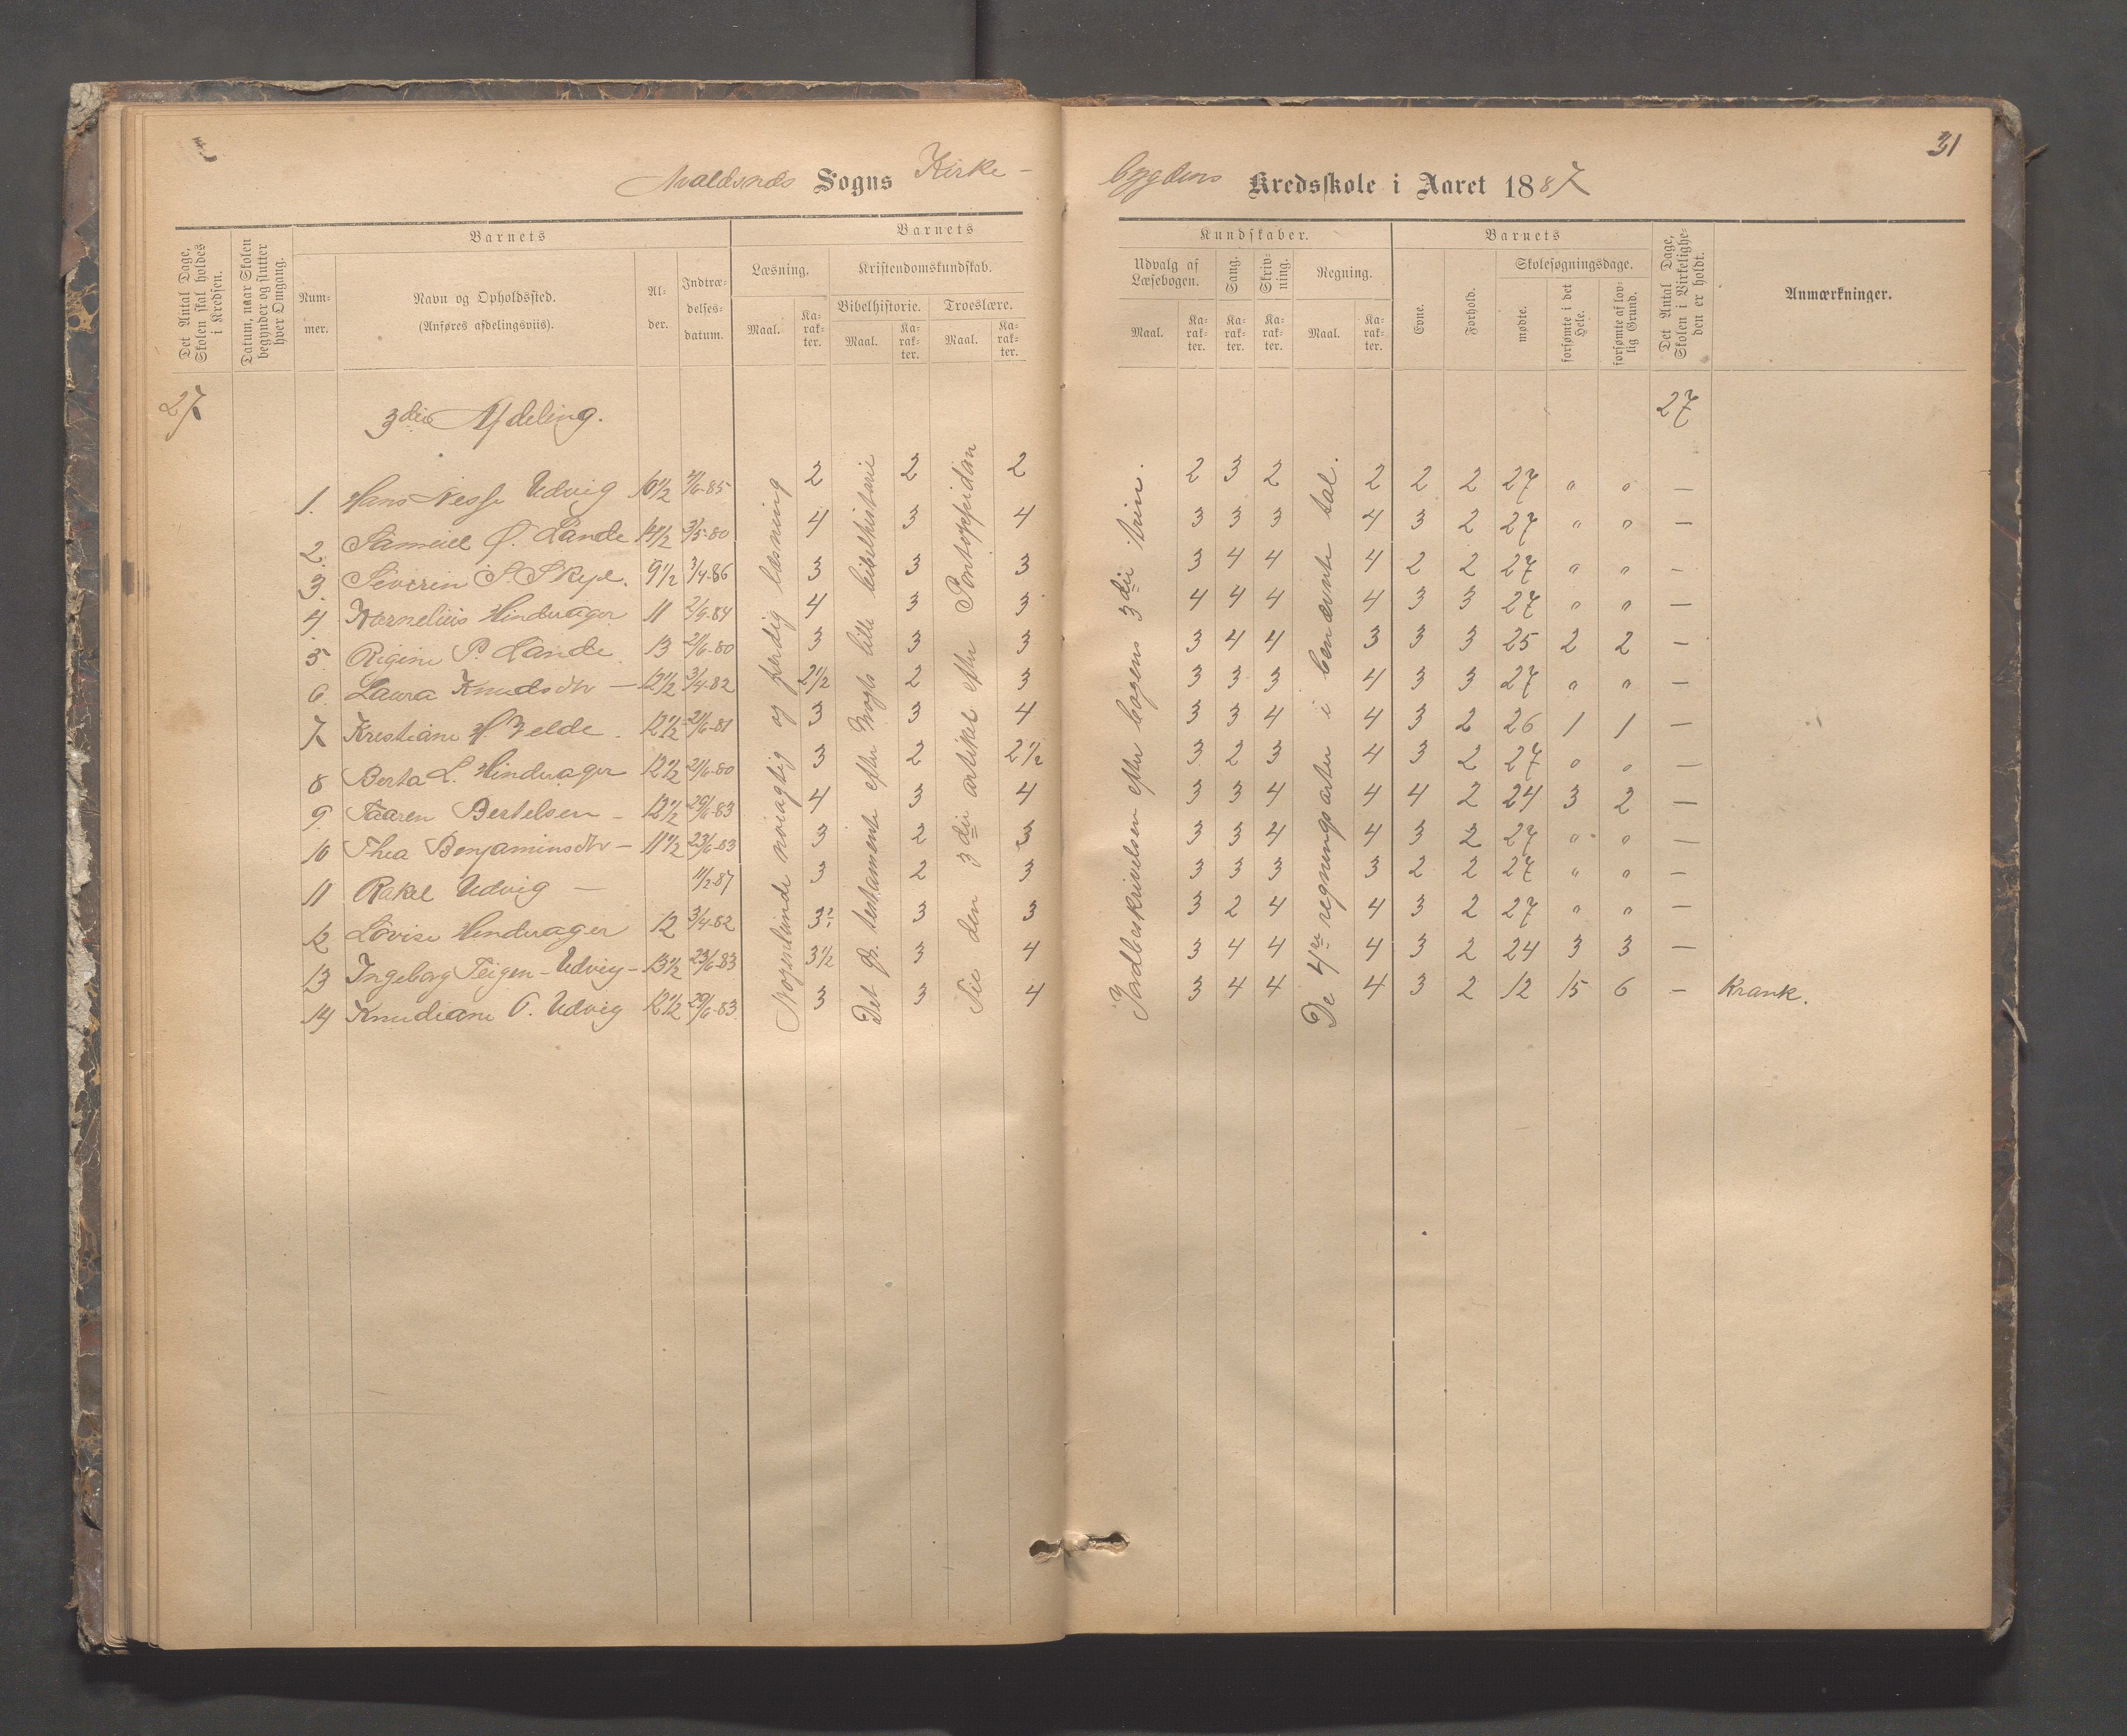 31
Avaldsnes Sogns Kirke-
bygdens Kredsskole i Aaret 1887
Det Antal Dage, Skolen skal holdes i Kredsen.
Datum, naar Skolen begynder og slutter hver Omgang.
Barnets
Num-mer.
Navn og Opholdssted.
(Anføres afdelingsviis).
Al-der.
Indtræ-delses-datum.
Barnets
Læsning.
Maal.
Ka-rak-ter.
Kristendomskundskab.
Bibelhistorie.
Maal.
Ka-rak-ter.
Troeslære.
Maal.
Ka-rak-ter.
Kundskaber.
Udvalg af Læsebogen.
Maal.
Ka-rak-ter.
Sang.
Ka-rak-ter.
Skriv-ning.
Ka-rak-ter.
Regning.
Maal.
Ka-rak-ter.
Barnets
Evne.
Forhold.
Skolesøgningsdage.
mødte.
forsømte i det Hele.
forsømte af lov-lig Grund.
Det Antal Dage, Skolen i Virkelighe-den er holdt.
Anmærkninger.
27 3die Afdeling. 27
1. Hans Nessf Udvig 10 1/2 21/6-85 2 2 2 2 3 2 2 2 2 27 " " —
2. Samuel O. Lande 14 1/2 3/5-80 4 3 4 3 3 3 4 3 2 27 " " —
3. Severin S. Skeje. 9 1/2 3/4-86 3 3 3 3 4 4 4 2 2 27 " " —
4 Kornelius Hinderager 11 2/9-84 4 3 3 4 4 4 4 3 3 27 " " —
5. Rigine P. Lande 13 21/6-80 3 3 3 3 4 4 3 3 3 25 2 2 —
6. Laura Knudsdtr — 12 1/2 3/4-82 2 1/2 2 3 3 3 3 4 3 3 27 " " —
7. Krestiane H. Velde. 12 1/2 21/6-81 3 3 4 3 3 4 4 3 2 26 1 1 —
8 Berta L. Hinderager 12 1/2 21/6-80 3 2 2 1/2 3 2 3 4 3 2 27 " " —
9. Taaren Bertelsen — 12 1/2 29/6-83 4 3 4 3 3 4 4 4 2 24 3 2 —
10 Thea Benjaminsdtr — 11 1/2 23/6-83 3 2 3 3 3 4 4 3 2 27 " " —
11 Rakel Udvig — 11/2-87 3 2 3 3 3 3 3 2 2 27 " " —
12 Lovise Hinderager 12 3/4-82 3 3 3 3 2 4 4 3 2 27 " " —
13 Ingeborg Teigen-Udvig — 13 1/2 23/6-83 3 1/2 3 4 3 4 4 4 3 2 24 3 3 —
14 Knudiane T. Udvig 12 1/2 29/6-83 3 3 4 3 4 4 4 3 2 12 15 6 — Krank.
Nogenlunde nøiagtig og færdig læsning
Det gl. testamente efter Vogts lille bibelhistorie
Til den 3die artikel efter Pontoppidan
Jordbeskrivelsen efter bogens 3die trin.
De 4re regningsarter i benævnte tal.